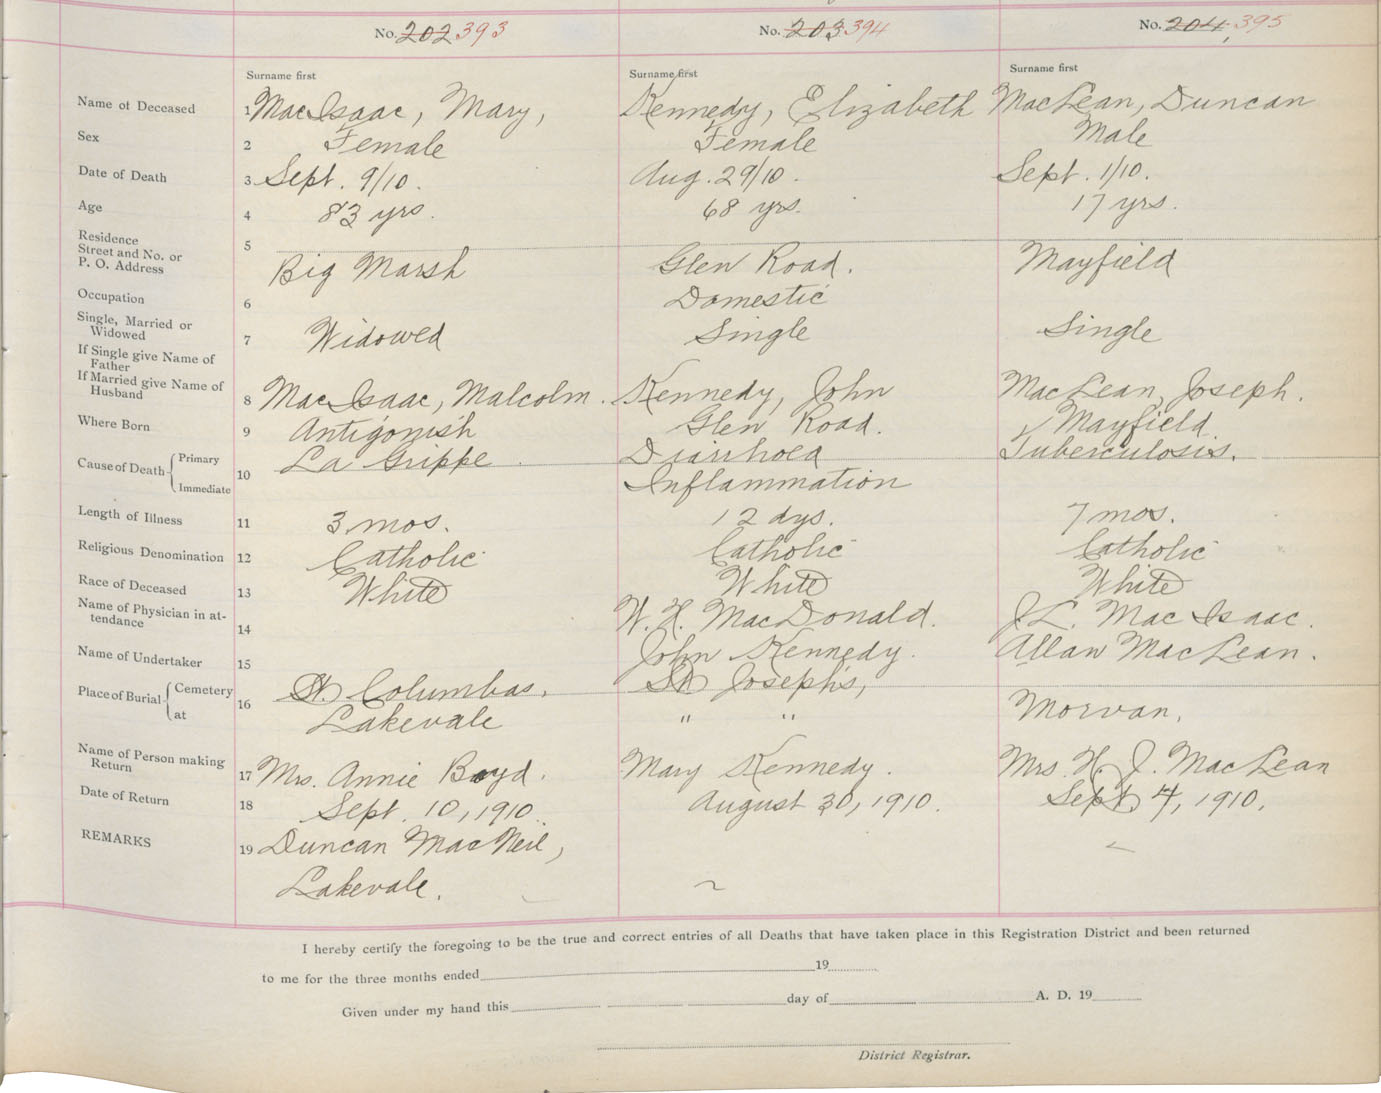 No. 202 393 No. 203 394 No. 204, 395
Surname first Surname first Surname first
Name of Deceased 1 MacIsaac, Mary, Kennedy, Elizabeth MacLean, Duncan
Sex 2 Female Female Male
Date of Death 3 Sept. 9/10. Aug. 29/10. Sept. 1/10.
Age 4 83 yrs. 68 yrs. 17 yrs.
Residence
Street and No. or
P. O. Address 5 Big Marsh Glen Road. Mayfield
Occupation 6 Domestic
Single, Married or
Widowed 7 Widowed Single Single
If Single give Name of
Father
If Married give Name of
Husband 8 MacIsaac, Malcolm. Kennedy, John MacLean, Joseph.
Where Born 9 Antigonish Glen Road. Mayfield
Cause of Death Primary 10 La Grippe Diarrhoea Tuberculosis.
Immediate Inflammation
Length of Illness 11 3 mos. 12 dys. 7 mos.
Religious Denomination 12 Catholic Catholic Catholic
Race of Deceased 13 White White White
Name of Physician in at-
tendance 14 W. H. MacDonald. J. L. MacIsaac.
Name of Undertaker 15 John Kennedy. Allan MacLean.
Place of Burial Cemetery 16 St. Columbas, St. Joseph's,
at Lakevale " " Morvan,
Name of Person making
Return 17 Mrs. Annie Boyd. Mary Kennedy. Mrs. H. J. MacLean
Date of Return 18 Sept. 10, 1910. August 30, 1910. Sept 4, 1910.
REMARKS 19 Duncan MacNeil,
Lakevale. ~
I hereby certify the foregoing to be the true and correct entries of all Deaths that have taken place in this Registration District and been returned
to me for the three months ended 19
Given under my hand this day of A. D. 19
District Registrar.